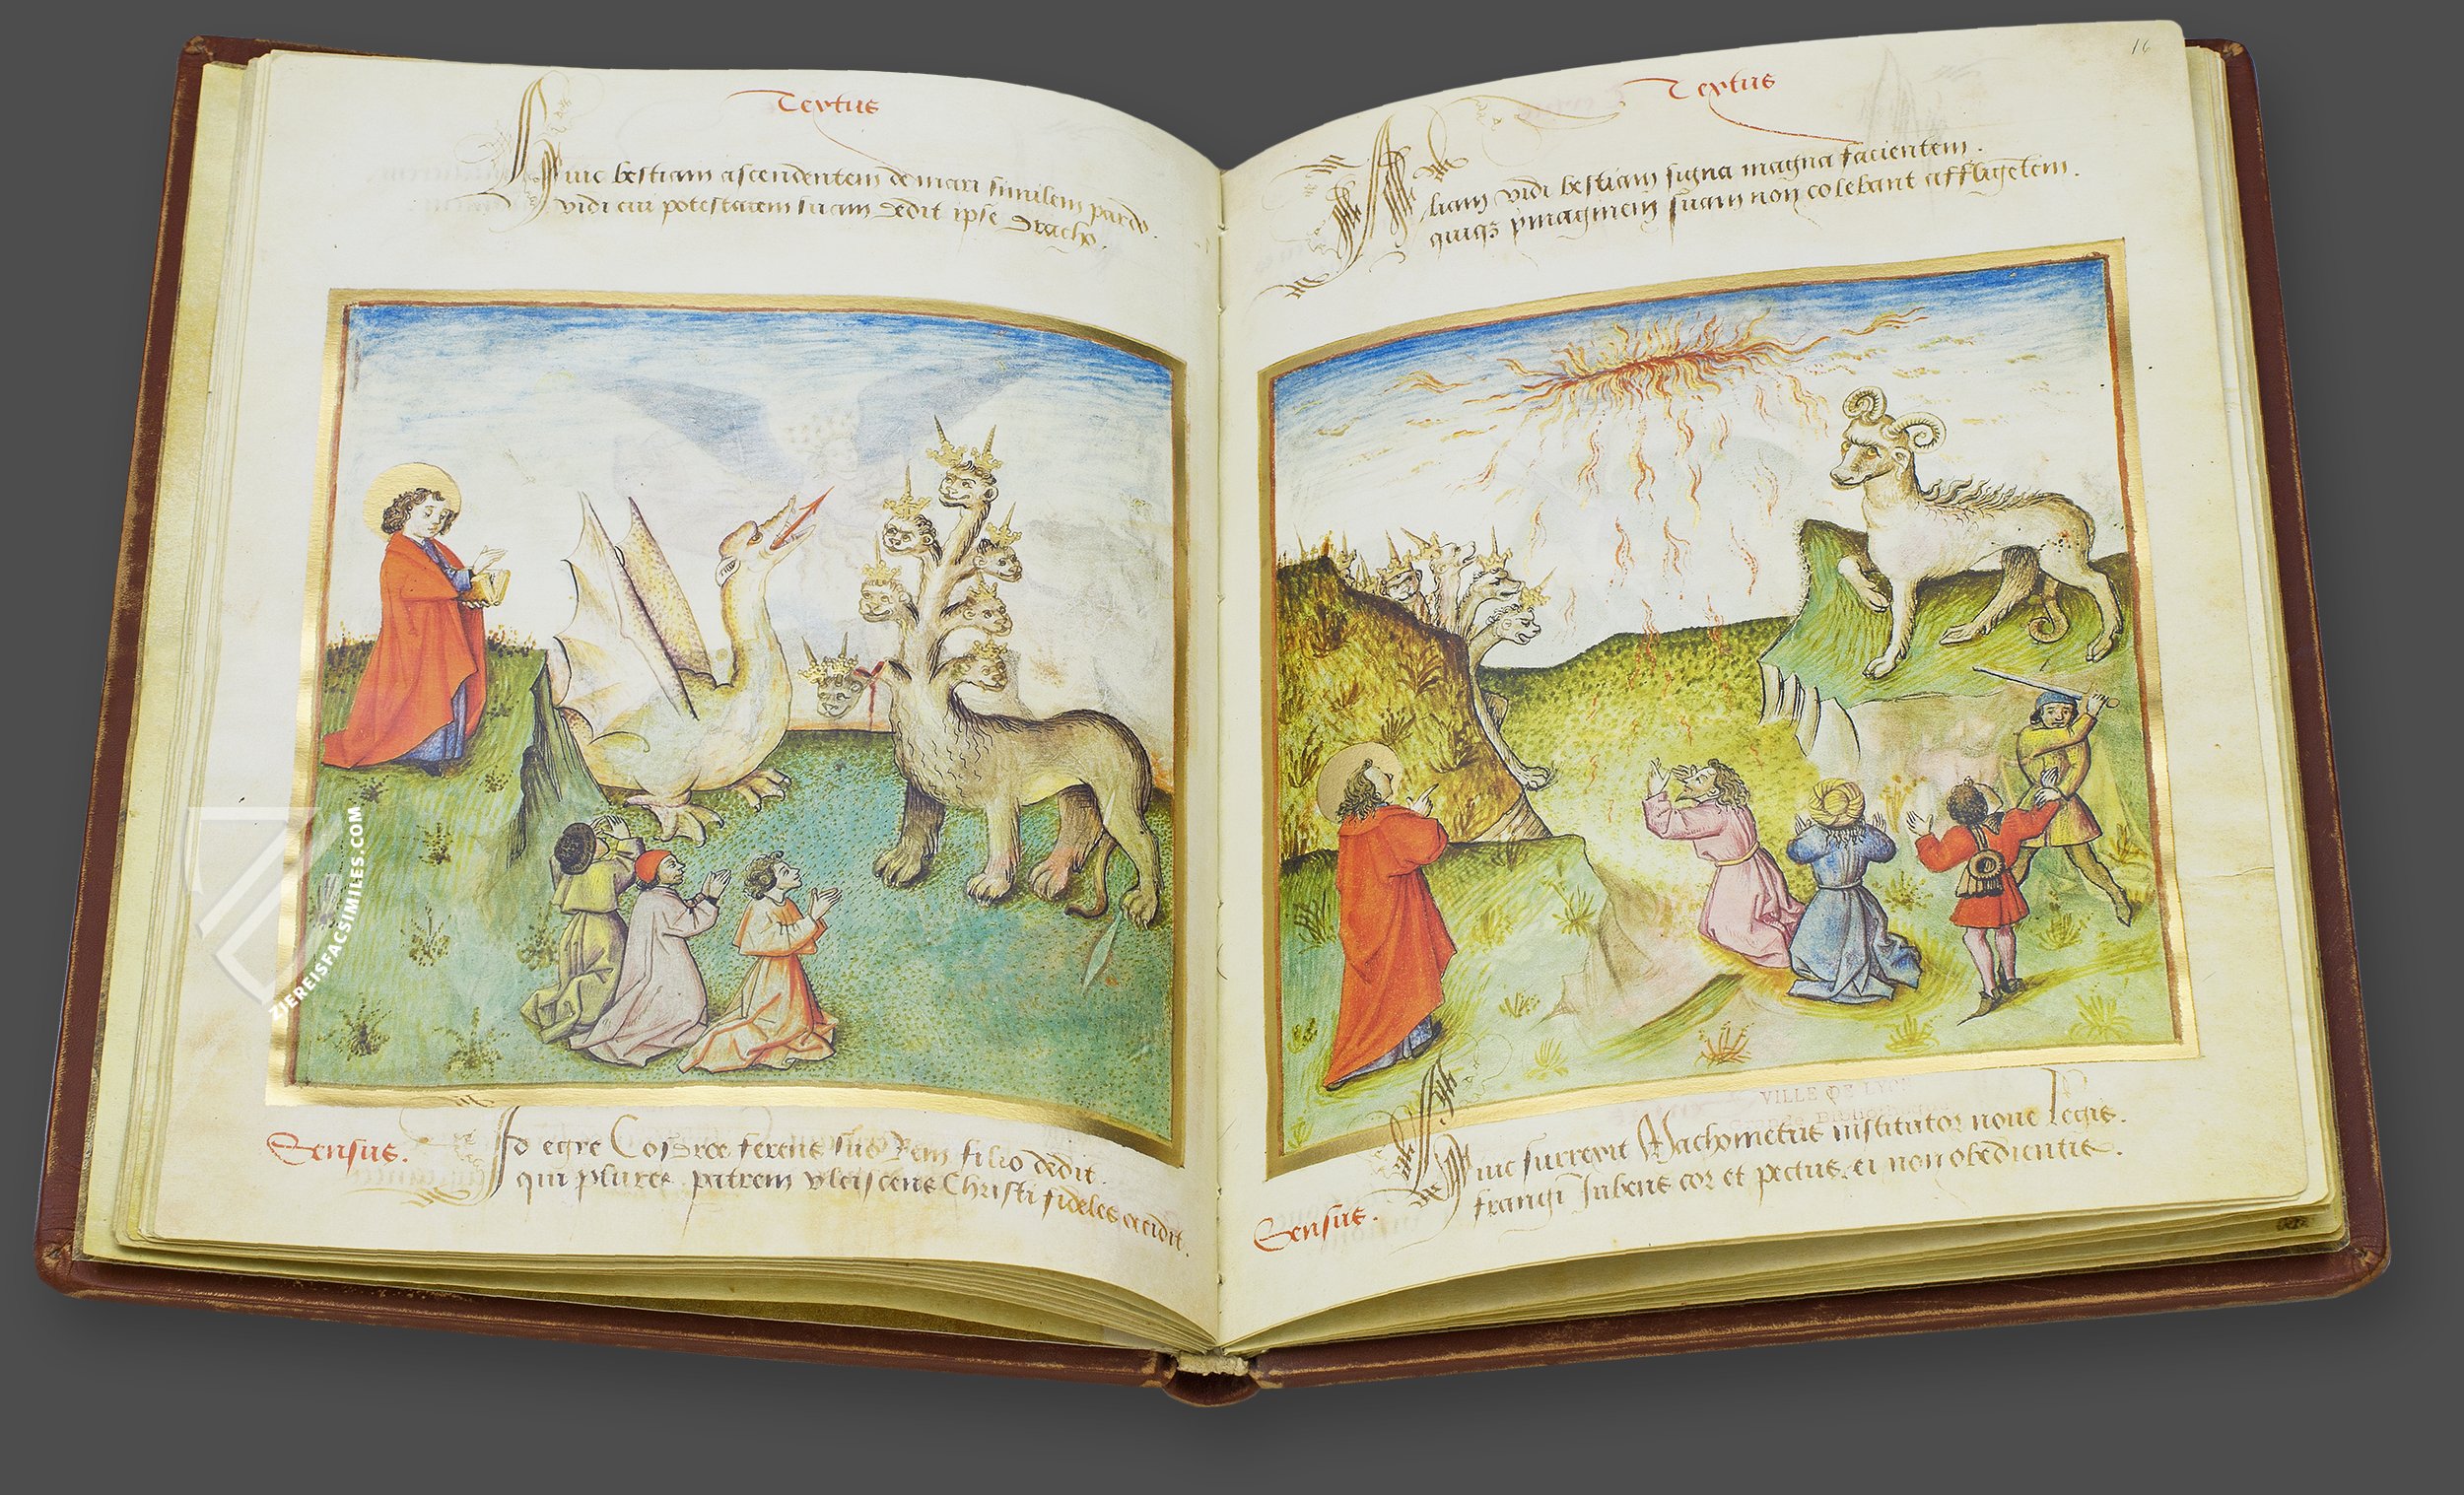 Textus
Huic bestiam ascendentem de mari similem pardo
vidi cui potestatem suam dedit ipse Dracho.
Sensus.
Id egre Cosdroe ferens suu Rem filio dedit.
qui plures patrem vlciscens Christi fideles occidit.
16
Textus
Aliam vidi bestiam signa magna facientem.
quiqz ymaginem suam non colebant affligetem.
VILLE DE LYON
Sensus.
Huic surrexit Machometus institutor noue legis.
frangi Jubens cor et pectus ei non obedientis.
ZIEREISFACSIMILES.COM